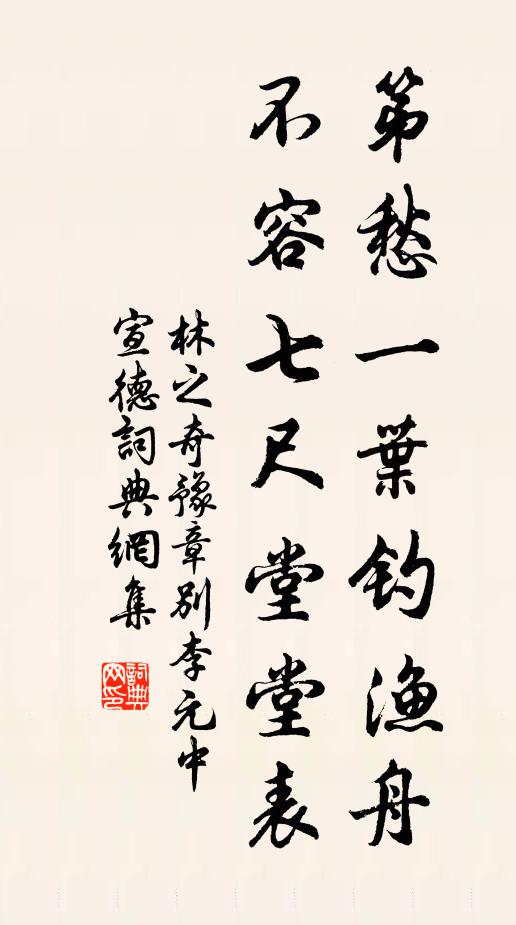 第愁一葉釣漁舟
不容七尺堂堂表
林之奇豫章別李元中
宣德詞典網集
詞典
网印